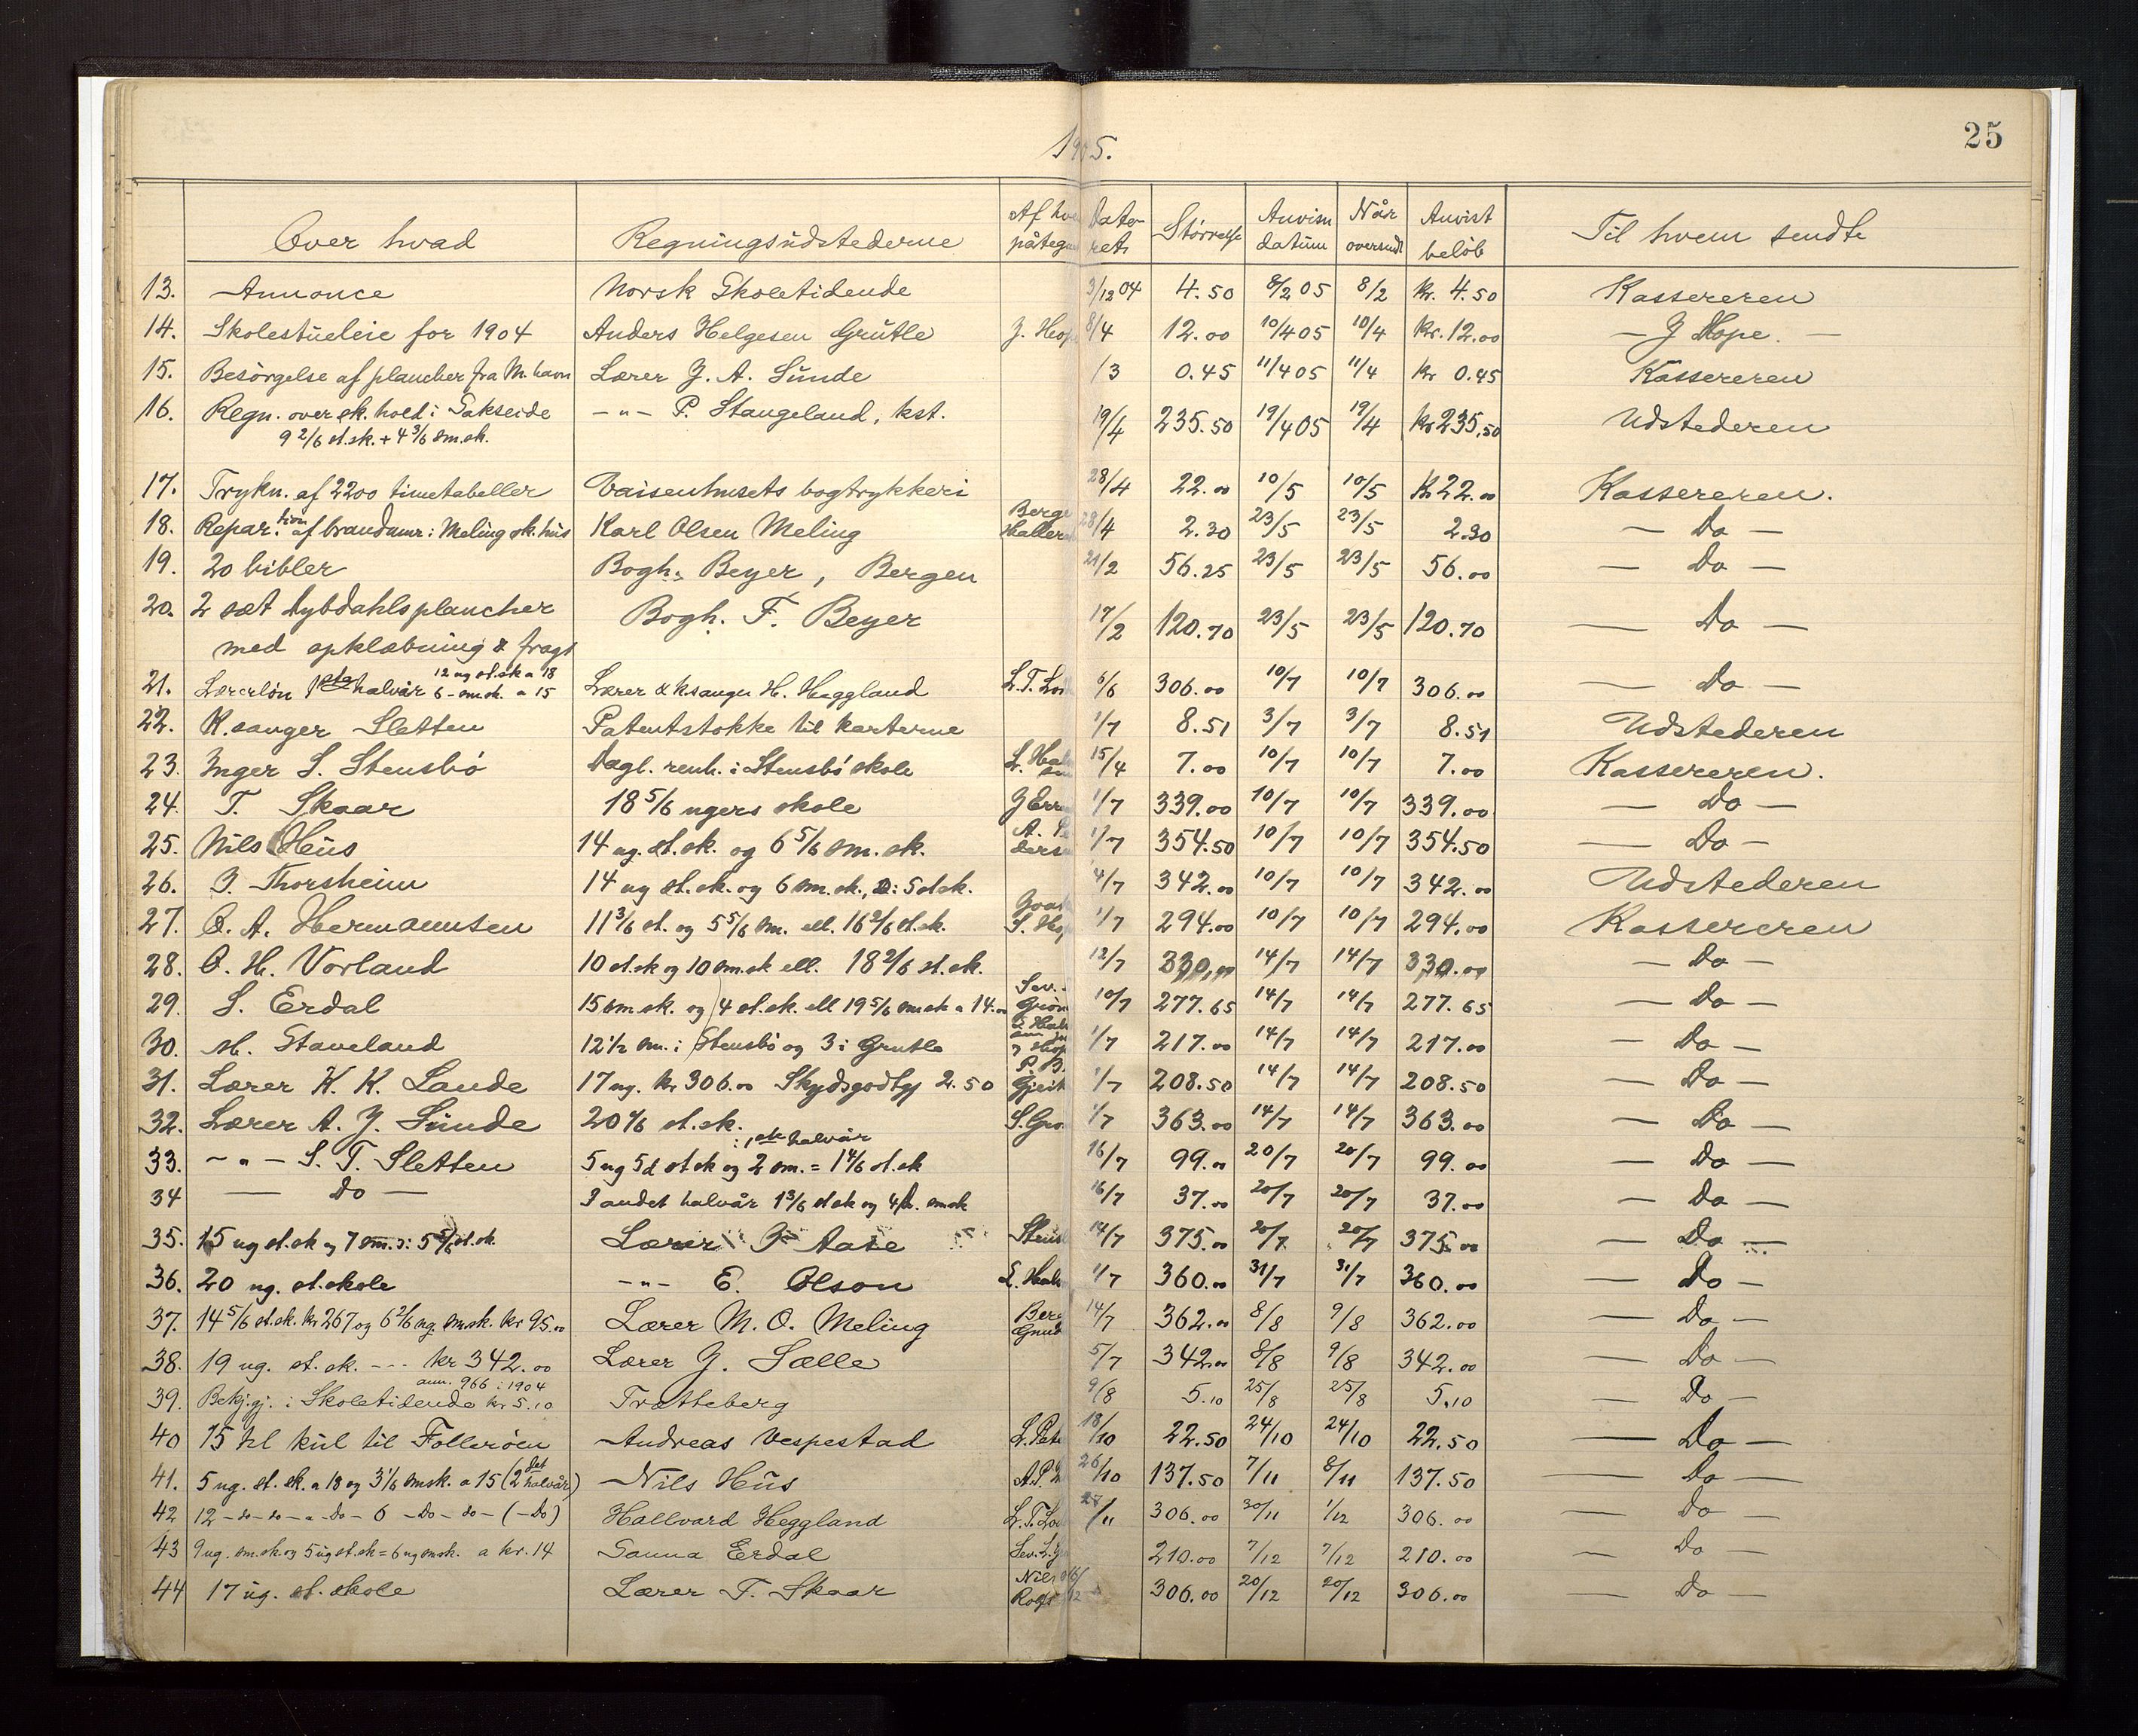 25
1905.
Over hvad Regningsudstederne Af hve påtegn Dateret Størrelse Anvisn datum Når oversendt Anvist beløb Til hvem sendte
13. Annonce Norsk Skoletidende 3/12 04 4.50 8/2 05 8/2 kr. 4.50 Kassereren
14. Skolestueleie for 1904 Anders Helgesen Grutle J. Hop 8/4 12.00 10/4 05 10/4 Kr. 12.00 — J Hope. —
15. Besørgelse af plancher fra M. havn Lærer J. A. Sunde /3 0.45 11/4 05 11/4 kr 0.45 Kassereren
16. Regn. over sk. hold i Sakseide — " — P. Stangeland, kst. 19/4 235.50 19/4 05 19/4 kr 235.50 Udstederen
9 2/6 st.sk. + 4 3/6 sm.sk.
17. Trykn. af 2200 timetabeller Vaisenhusets bogtrykkeri 28/4 22.00 10/5 10/5 Kr 22.00 Kassereren.
18. Repar.tion af brandmur i Meling sk. hus Karl Olsen Meling Berge Haller 28/4 2.30 23/5 23/5 2.30 — Do —
19. 20 bibler Bogh. Beyer, Bergen 21/2 56.25 23/5 23/5 56.00 — Do —
20. 2 sæt Dybdahls plancher Bogh. F. Beyer 17/2 120.70 23/5 23/5 120.70 — Do —
med opklæbning & fragt
21. Lærerløn 1ste halvår 12 ug st.sk a 18 6 - sm.sk. a 15 Lærer & ksanger H. Heggland L. T. 6/6 306.00 10/7 10/7 306.00 — Do —
22. K. sanger Sletten Patentstokke til karterne 1/7 8.51 3/7 3/7 8.51 Udstederen
23. Inger S. Stensbø Dagl. renh. i Stensbø skole L. Hal 15/4 7.00 10/7 10/7 7.00 Kassereren.
24. T. Skaar 18 5/6 ugers skole 1/7 339.00 10/7 10/7 339.00 — Do —
25. Nils Hus 14 ug. st.sk. og 6 5/6 sm.sk. A. Pe ders 1/7 354.50 10/7 10/7 354.50 — Do —
26. J. Thorsheim 14 ug st.sk. og 6 sm.sk., ɔ: 5 st.sk. 4/7 342.00 10/7 10/7 342.00 Udstederen
27. O. A. Hermannsen 11 3/6 st. og 5 5/6 sm. ell. 16 2/6 st.sk. 1/7 294.00 10/7 10/7 294.00 Kassereren
28. O. H. Vorland 10 st.sk og 10 sm.sk ell. 18 2/6 st.sk. 12/7 330.00 14/7 14/7 330.00 — Do —
29. S. Erdal 15 sm.sk. og 4 st.sk. ell 19 5/6 sm.sk a 14.00 Sev. 10/7 277.65 14/7 14/7 277.65 — Do —
30. M. Staveland 12 1/2 sm. i Stensbø og 3 i Grutle 1/7 217.00 14/7 14/7 217.00 — Do —
31. Lærer K. K. Lande 17 ug. kr 306.00 Skydsgodtgj 2.50 P. B. Gjeit 1/7 208.50 14/7 14/7 208.50 — Do —
32. Lærer A. J. Sunde 20 1/6 st.sk. S. Gro 1/7 363.00 14/7 14/7 363.00 — Do —
33. — " — S. T. Sletten 5 ug 5 d st sk og 2 sm. = 1 4/6 st.sk i 1ste halvår 16/7 99.00 20/7 20/7 99.00 — Do —
34 — Do — I andet halvår 1 3/6 st sk og 4 sm sk 16/7 37.00 20/7 20/7 37.00 — Do —
35. 15 ug st.sk og 7 sm. ɔ: 5 5/6 st.sk. Lærer Aase 14/7 375.00 20/7 20/7 375.00 — Do —
36. 20 ug. st.skole — " — E. Olson L. Hal 1/7 360.00 31/7 31/7 360.00 — Do —
37. 14 5/6 st.sk. kr 267 og 6 2/6 ug. sm.sk. kr 95.00 Lærer M. O. Meling Ber 14/7 362.00 8/8 9/8 362.00 — Do —
38. 19 ug. st. sk. --- kr 342.00 Lærer J. Sælle 5/7 342.00 8/8 9/8 342.00 — Do —
39. Bekj.gj. i Skoletidende kr 5.10 ann. 966 i 1904 Trætteberg 9/8 5.10 25/8 25/8 5.10 — Do —
40 15 hl kul til Follerøen Andreas Vespestad L. Pet 18/10 22.50 24/10 24/10 22.50 — Do —
41. 5 ug. st. sk. a 18 og 3 1/6 sm sk. a 15 (2det halvår) Nils Hus A. P. 26/10 137.50 7/11 8/11 137.50 — Do —
42 12 - do - do - a - Do - 6 - Do - do - (- Do) Hallvard Heggland L. T. 27/11 306.00 30/11 1/12 306.00 — Do —
43 9 ug. sm.sk og 5 ug st.sk = 6 ug sm sk. a kr. 14 Sanna Erdal Sev. L. 210.00 7/12 7/12 210.00 — Do —
44 17 ug. st. skole Lærer T. Skaar Nils 306.00 20/12 20/12 306.00 — Do —